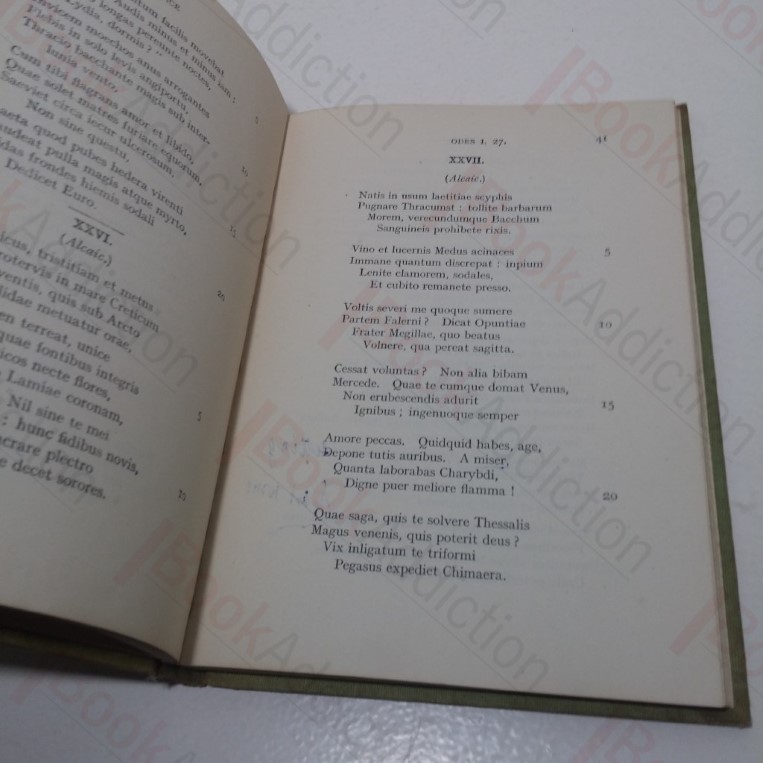 CE
tum facilis movebat
Audis minus et minus iam:
longas pereunte noctes,
Lydia, dormis?"
Invicem moechos anus arrogantes
Flebis in solo levis angiportu
Thracio bacchante magis sub inter-
lunia vento,
Cum tibi flagrans amor et libido,
Quae solet matres furiare equorum,
Saeviet circa iecur ulcerosum,
Non sine questu,
aeta quod pubes hedera virenti
udeat pulla magis atque myrto,
idas frondes hiemis sodali
Dedicet Euro.
XXVI.
(Alcaic.)
icus, tristitiam et metus
rotervis in mare Creticum
ventis, quis sub Arcto
lidae metuatur orae,
en terreat, unice
quae fontibus integris
icos necte flores,
Lamiae coronam,
Nil sine te mei
: hunc fidibus novis,
crare plectro
e decet sorores.
5
10
15
20
5
15
ODES I. 27. 41
XXVII.
(Alcaic.)
Natis in usum laetitiae scyphis
Pugnare Thracumst : tollite barbarum
Morem, verecundumque Bacchum
Sanguineis prohibete rixis.
Vino et lucernis Medus acinaces 5
Immane quantum discrepat : inpium
Lenite clamorem, sodales,
Et cubito remanete presso.
Voltis severi me quoque sumere
Partem Falerni? Dicat Opuntiae 10
Frater Megillae, quo beatus
Volnere, qua pereat sagitta.
Cessat voluntas? Non alia bibam
Mercede. Quae te cumque domat Venus,
Non erubescendis adurit 15
Ignibus ; ingenuoque semper
Amore peccas. Quidquid habes, age,
Depone tutis auribus. A miser,
Quanta laborabas Charybdi,
Digne puer meliore flamma ! 20
Quae saga, quis te solvere Thessalis
Magus venenis, quis poterit deus?
Vix inligatum te triformi
Pegasus expediet Chimaera.
BookAddiction